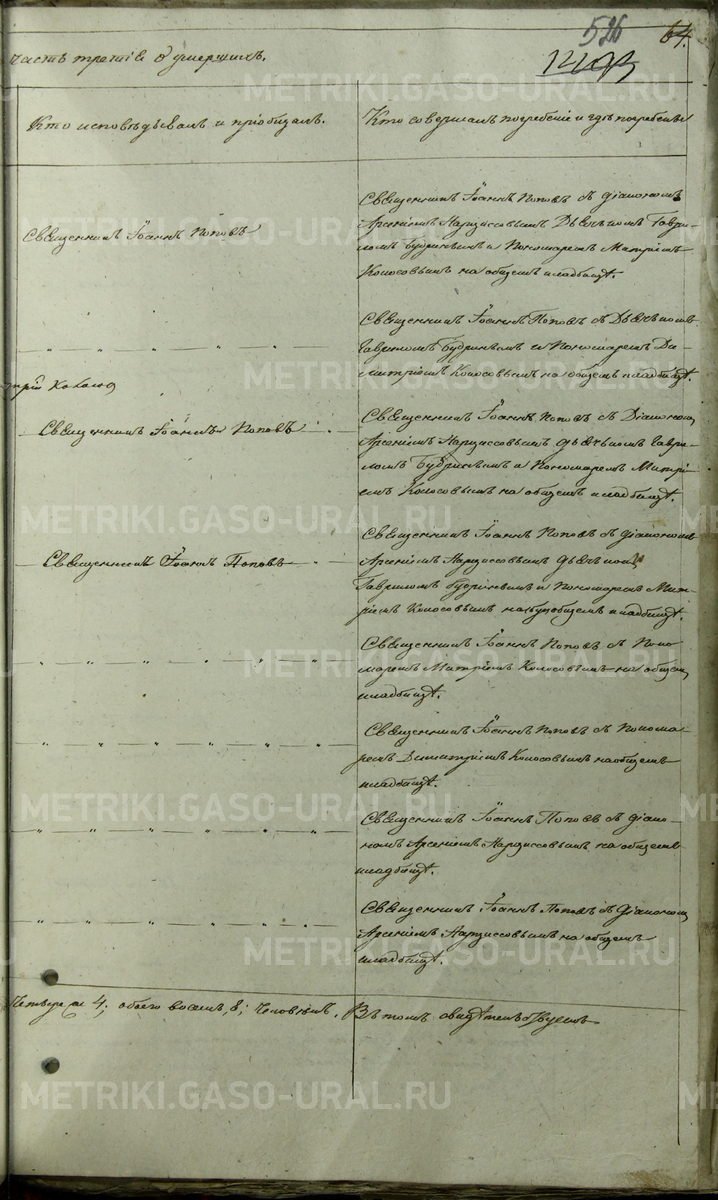 526
64.
часть третія о умершихъ.
Кто исповѣдывалъ и пріобщалъ.
Кто совершалъ погребеніе и гдѣ погребены
Священникъ Іоаннъ Поповъ
Священникъ Іоаннъ Поповъ съ діакономъ
Арсеніемъ Нарциссовымъ Дьячкомъ Гаври-
ломъ Будринымъ и Пономаремъ Митріемъ
Колосовымъ на общемъ кладбищѣ.
Священникъ Іоаннъ Поповъ съ Дьячкомъ
Гавриломъ Будринымъ и Пономаремъ Ди-
митріемъ Колосовымъ на общемъ кладбищѣ.
Священникъ Іоаннъ Поповъ
Священникъ Іоаннъ Поповъ съ Діакономъ
Арсеніемъ Нарциссовымъ дьячкомъ Гаври-
ломъ Будринымъ и Пономаремъ Митрі-
емъ Колосовымъ на общемъ кладбищѣ.
Священникъ Іоаннъ Поповъ
Священникъ Іоаннъ Поповъ съ діакономъ
Арсеніемъ Нарциссовымъ дьячкомъ
Гавриломъ Будринымъ и Пономаремъ Мит-
ріемъ Колосовымъ кладбищѣ.
Священникъ Іоаннъ Поповъ съ Поно
маремъ Митріемъ Колосовымъ на общемъ
кладбищѣ.
Священникъ Іоаннъ Поповъ съ Понома-
ремъ Димитріемъ Колосовымъ на общемъ
кладбищѣ.
Священникъ Іоаннъ Поповъ съ діако-
номъ Арсеніемъ Нарциссовымъ на общемъ
кладбищѣ.
Священникъ Іоаннъ Поповъ съ Діакономъ
Арсеніемъ Нарциссовымъ на общемъ
кладбищѣ.
4; обоего восемь, 8; человѣкъ.
Въ томъ свидѣтельствуемъ
METRIKI.GASO-URAL.RU